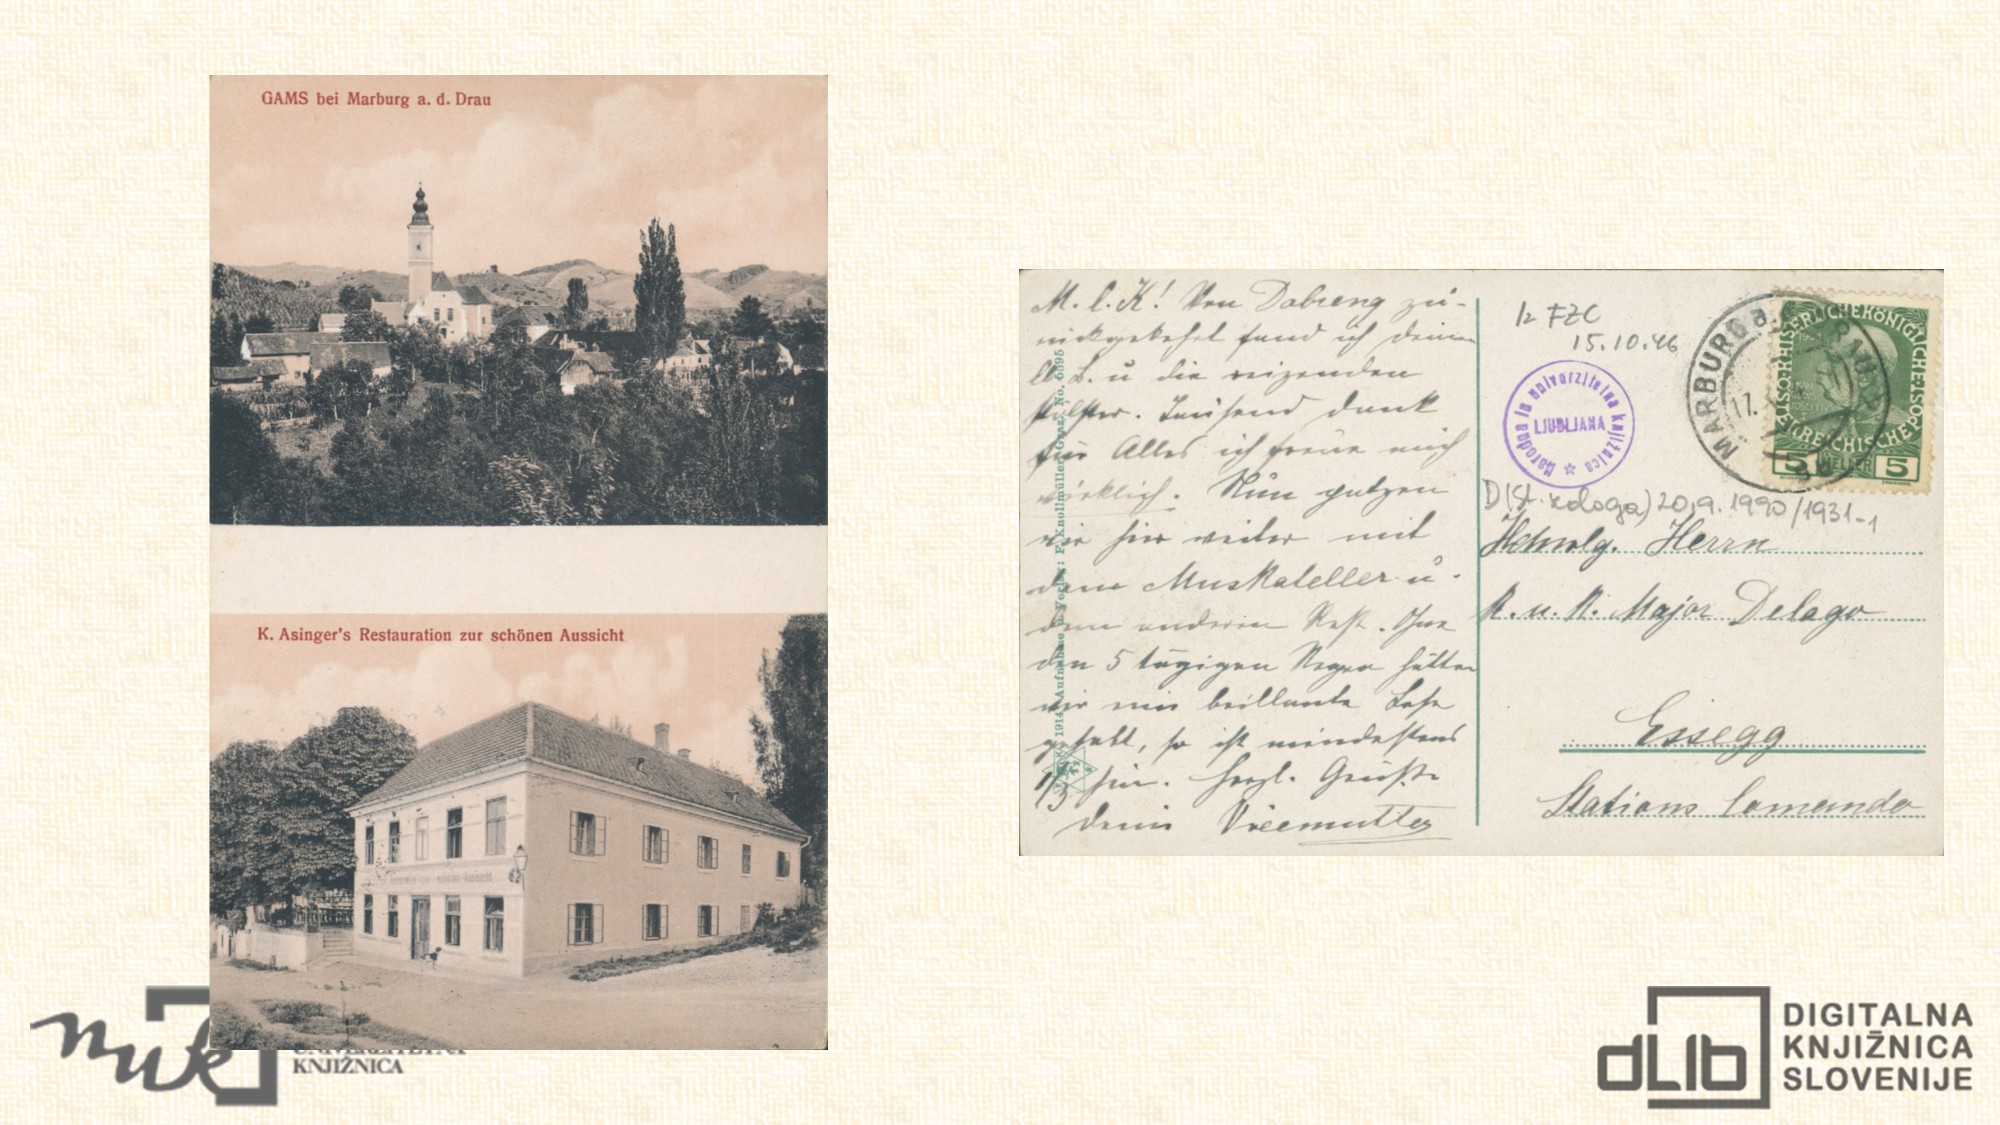 GAMS bei Marburg a. d. Drau
K. Asinger's Restauration zur schönen Aussicht
M. l. K! Von Dobreng zu-
rückgekehrt fand ich deinen
lb. B. u die reizenden
Tausend dank
für Alles ich freue mich
wirklich. Nun putzen
wir hier weiter mit
dem Muskateller u.
dem anderen Rest. Ohne
den 5 tägigen Regen hätten
wir eine brillante Lese
gehabt, so ist mindestens
1/3 hin. Herzl. Grüße
deine Vicemutter
1914 Aufnahme u. Verlag: F. Knollmüller, Graz. No. 6595
Iz FZC
15.10.46
Narodna in univerzitetna knjižnica
LJUBLJANA
MARBURG a. DRAU
17.
KAISERLICHE KÖNIGLICHE ÖSTERREICHISCHE POST
5 HELLER 5
D(st. zaloga) 20.9.1990/1931-1
Hochwolg. Herrn
K. u. K. Major Delago
Essegg
Stations Comando
nuk
UNIVERZITETNA
KNJIŽNICA
dLib
DIGITALNA
KNJIŽNICA
SLOVENIJE